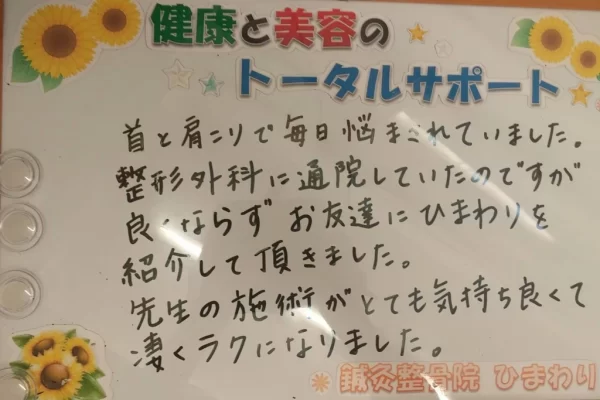 健康と美容の
トータルサポート
首と肩こりで毎日悩まされていました。
整形外科に通院していたのですが
良くならずお友達にひまわりを
紹介して頂きました。
先生の施術がとても気持ち良くて
凄くラクになりました。
鍼灸整骨院 ひまわり